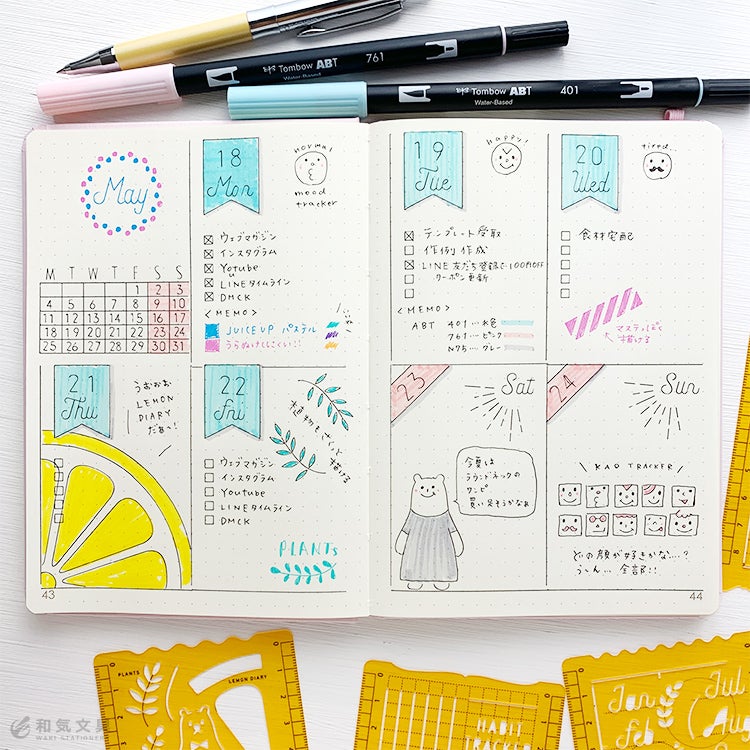 Tombow ABT 761
Water-Based
Tombow ABT 401
Water-Based
May
M T W T F S S
1 2 3
4 5 6 7 8 9 10
11 12 13 14 15 16 17
18 19 20 21 22 23 24
25 26 27 28 29 30 31
18
Mon
normal
mood
tracker
ウェブマガジン
インスタグラム
Youtube
LINEタイムライン
DMCK
<MEMO>
JUICE UP パステル
うらぬけしにくい!!
19
Tue
happy!
テンプレート受取
作例作成
LINE友だち登録で100円OFF
クーポン更新
<MEMO>
ABT 401...水色
761...ピンク
N75...グレー
20
Wed
tired...
食材宅配
マステっぽく
描ける
21
Thu
うおおお
LEMON
DIARY
だぁ〜!
22
Fri
植物もさくっと
描ける
ウェブマガジン
インスタグラム
Youtube
LINEタイムライン
DMCK
PLANTS
23
Sat
今夏は
ラウンドネックの
ワンピ
買い足そうかなぁ
24
Sun
\ KAO TRACKER /
どの顔が好きかな...?
うーん... 全部!!
43
44
PLANTS
LEMON DIARY
HABIT
TRACKER
Jan
Feb
Jul
Au
和気文具
WAKI STATIONERY